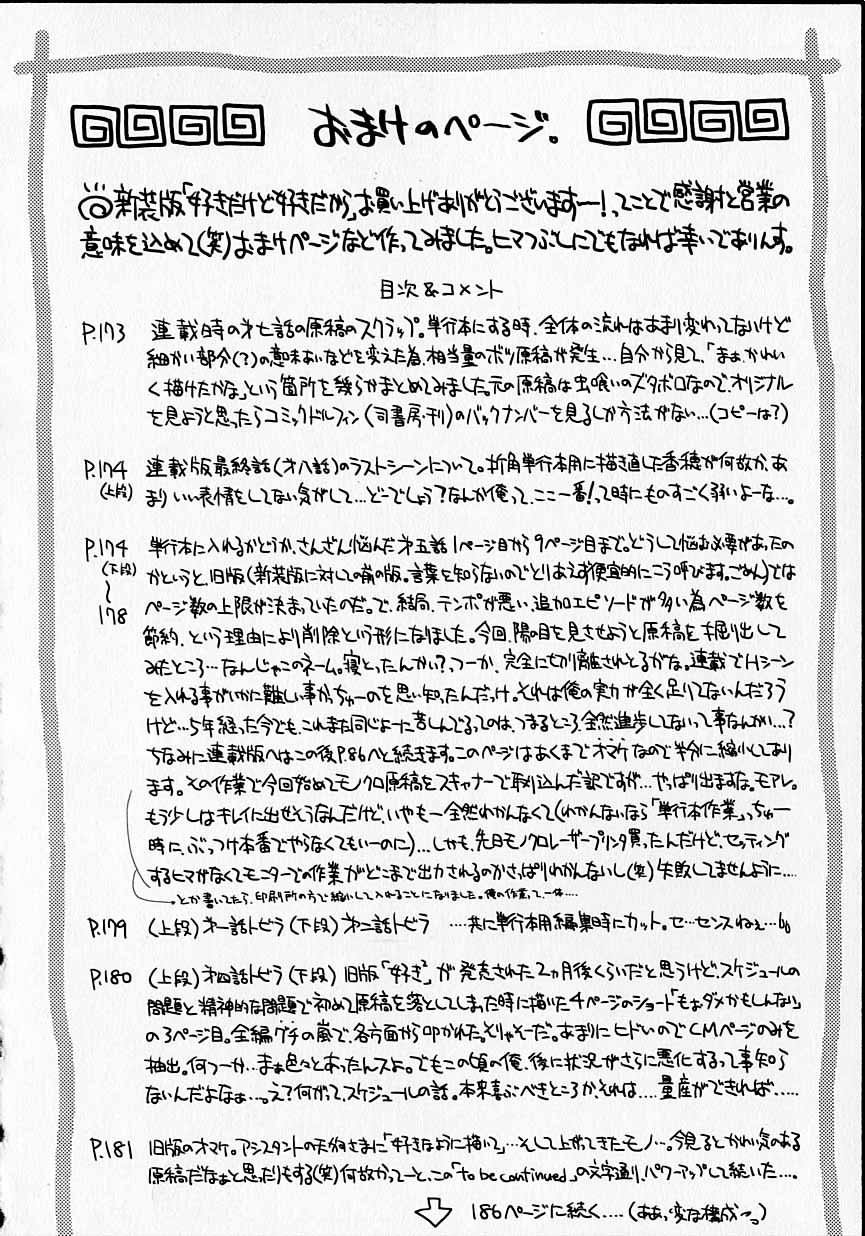 おまけのページ。
新装版「好きだけど好きだから」お買い上げありがとうございますー!ってことで感謝と営業の
意味を込めて(笑)おまけページなど作ってみました。ヒマつぶしにでもなれば幸いでありんす。
目次&コメント
P.173 連載時の才七話の原稿のスクラップ。単行本にする時、全体の流れはあまり変わってないけど
細かい部分(?)の意味あいなどを変えた為、相当量のボツ原稿が発生…自分から見て、「まぁ、かわい
く描けたかな」という箇所を幾らかまとめてみました。元の原稿は虫喰いのズタボロなので、オリジナル
を見ようと思ったらコミックドルフィン(司書房・刊)のバックナンバーを見るしか方法がない…(コピーは?)
P.174 連載版最終話(才八話)のラストシーンについて。折角単行本用に描き直した香穂が何故か、あ
(上段) まりいい表情をしてない気がして…どーでしょう?なんか俺って、ここ一番!って時にものすごく弱いよーな…。
P.174 単行本に入れるかどうか、さんざん悩んだ才五話1ページ目から9ページ目まで。どうして悩む必要があったの
(下段) かというと、旧版(新装版に対しての前の版。言葉を知らないのでとりあえず便宜的にこう呼びます。ごめん)では
〜 ページ数の上限が決まっていたのだ。で、結局、テンポが悪い、追加エピソードが多い為ページ数を
178 節約、という理由により削除という形になりました。今回、陽の目を見させようと原稿を掘り出して
みたところ…なんじゃこのネーム。寝とったんかい?つーか、完全に切り離されとるがな。連載でHシーン
を入れる事がいかに難しい事か、ちゅーのを思い知ったんだっけ。それは俺の実力が全く足りてないんだろう
けど…5年経った今でも、これまた同じよーに苦しんでるってのは、つまるところ、全然進歩してないって事なんかい…?
ちなみに連載版へはこの後P.86へと続きます。このページはあくまでオマケなので半分に縮小してあり
ます。その作業で今回始めてモノクロ原稿をスキャナーで取り込んだ訳ですが…やっぱり出ますな。モアレ。
もう少しはキレイに出せそうなんだけど、いやもー全然わかんなくて(わかんないなら「単行本作業」っちゅー
時に、ぶっつけ本番でやらなくてもいーのに)…しかも、先日モノクロレーザープリンタ買ったんだけど、セッティング
するヒマがなくてモニターでの作業がどこまで出力されるのかさっぱりわかんないし(笑)失敗してませんように….
とか書いてたら、印刷所の方で縮小して入れることになりました。俺の作業って、一体….
P.179 (上段)才一話トビラ(下段)才二話トビラ …共に単行本用編集時にカット。セ…センスねぇ…
P.180 (上段)才四話トビラ(下段)旧版「好き²」が発売された2ヵ月後くらいだと思うけど、スケジュールの
問題と精神的な問題で初めて原稿を落としてしまった時に描いた4ページのショート「もぉダメかもしんない」
の3ページ目。全編グチの嵐で、各方面から叩かれた。そりゃそーだ。あまりにヒドいのでCMページのみを
抽出。何つーか…まぁ色々とあったんスよ。でもこの頃の俺、後に状況がさらに悪化するって事知ら
ないんだよなぁ…。え?何がって、スケジュールの話。本来喜ぶべきところか、それは….量産ができれば…..
P.181 旧版のオマケ。アシスタントの さまに「好きなように描いて」…そして上がってきたモノ…。今見るとかわい気のある
原稿だなぁと思ったりもする(笑)何故かってーと、この「to be continued」の文字通り、パワーアップして続いた….
186ページに続く….(ああっ、変な構成〜っ)